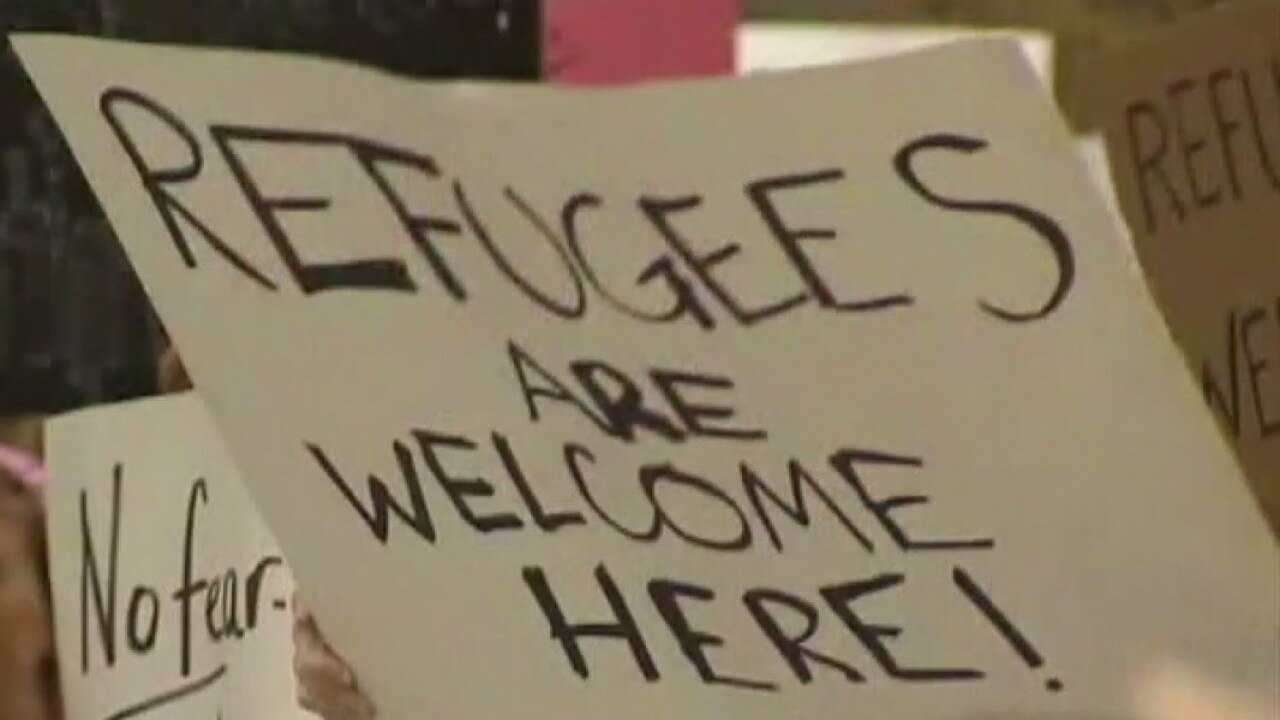 REFUGEES
ARE
WELCOME
HERE!
No fear-